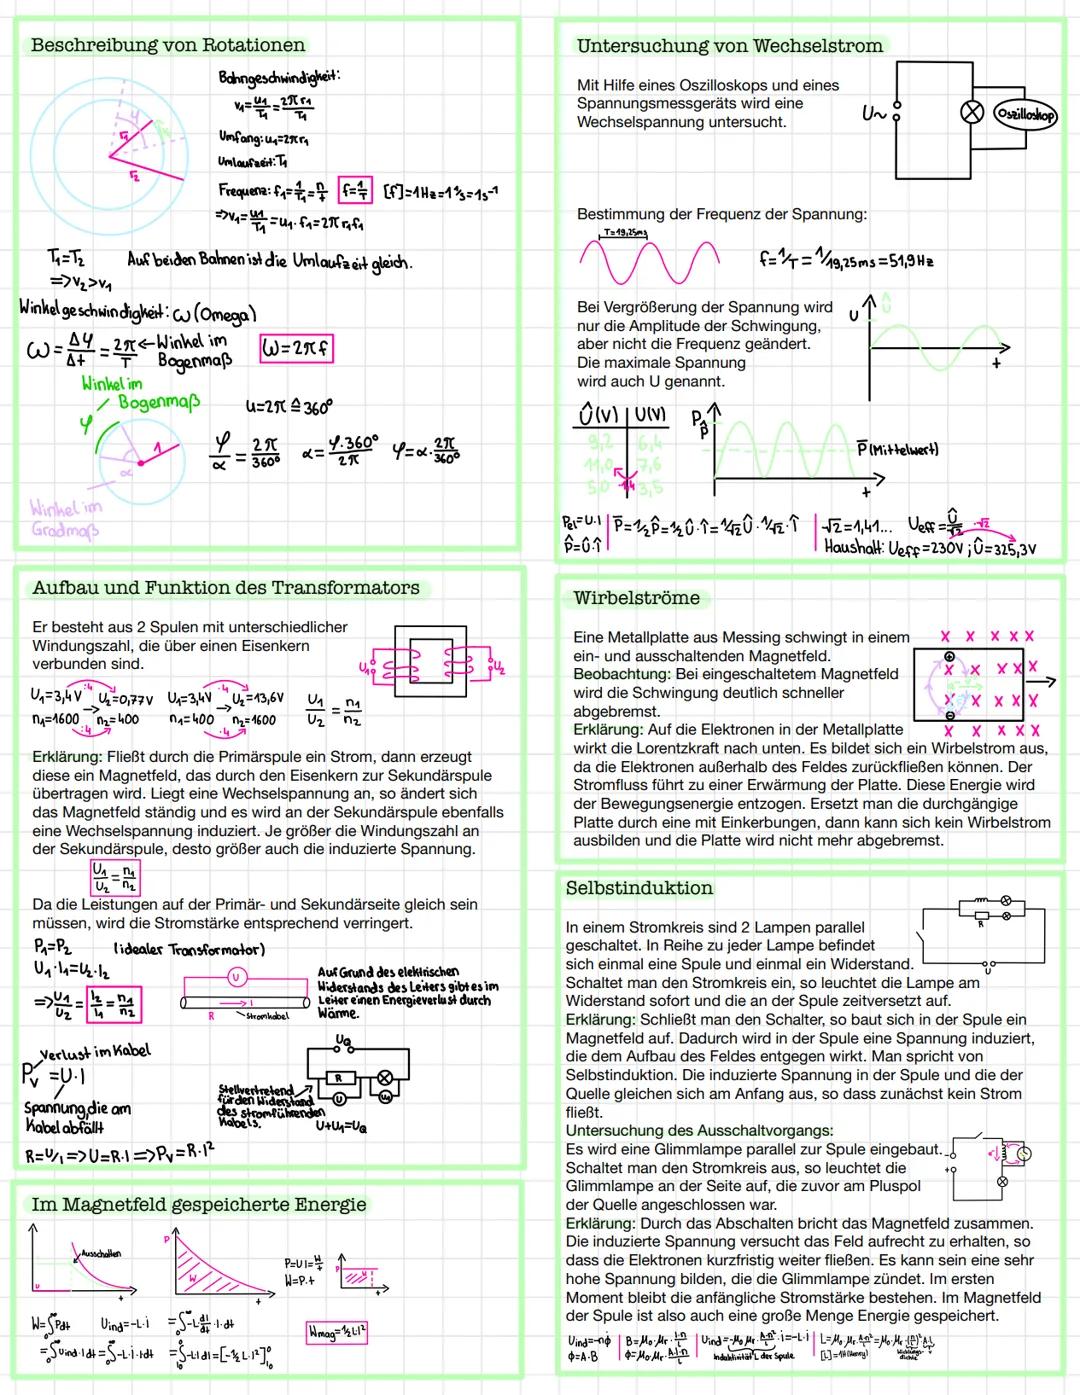 Beschreibung von Rotationen
Bahngeschwindigkeit:
v₁=u₁/T₁=2πr₁/T₁
Umfang: u₁=2πr₁
Umlaufzeit: T₁
Frequenz: f₁=1/T₁=n/t f=1/T [f]=1Hz=1 1/s=1s⁻¹
=>v₁=u₁/T₁=u₁·f₁=2πr₁f₁
φ
r₁
r₂
T₁=T₂ Auf beiden Bahnen ist die Umlaufzeit gleich.
=>v₂>v₁
Winkelgeschwindigkeit: ω (Omega)
ω=Δφ/Δt=2π/T ←Winkel im Bogenmaß ω=2πf
Winkel im
Bogenmaß
φ
1
α
u=2π≙360°
φ/α=2π/360° α=φ·360°/2π φ=α·2π/360°
Winkel im
Gradmaß
Untersuchung von Wechselstrom
Mit Hilfe eines Oszilloskops und eines
Spannungsmessgeräts wird eine
Wechselspannung untersucht.
U~
Oszilloskop
Bestimmung der Frequenz der Spannung:
T=19,25ms
f=1/T=1/19,25ms=51,9Hz
Bei Vergrößerung der Spannung wird
nur die Amplitude der Schwingung,
aber nicht die Frequenz geändert.
Die maximale Spannung
wird auch U genannt.
U Û
t
Û(V) U(V)
9,2 6,4
11,0 7,6
5,0 3,5
·1,4
P
P̂
P̄(Mittelwert)
t
Pel=U·I P̄=½P̂=½Û·Î=1/√2Û·1/√2·Î √2=1,41... Ueff=Û/√2 ·√2
P̂=Û·Î Haushalt: Ueff=230V; Û=325,3V
Aufbau und Funktion des Transformators
Er besteht aus 2 Spulen mit unterschiedlicher
Windungszahl, die über einen Eisenkern
verbunden sind.
U₁ U₂
:4 ·4
U₁=3,4V → U₂=0,77V U₁=3,4V → U₂=13,6V U₁/U₂=n₁/n₂
n₁=1600 n₂=400 n₁=400 n₂=1600
:4 ·4
Erklärung: Fließt durch die Primärspule ein Strom, dann erzeugt
diese ein Magnetfeld, das durch den Eisenkern zur Sekundärspule
übertragen wird. Liegt eine Wechselspannung an, so ändert sich
das Magnetfeld ständig und es wird an der Sekundärspule ebenfalls
eine Wechselspannung induziert. Je größer die Windungszahl an
der Sekundärspule, desto größer auch die induzierte Spannung.
U₁/U₂=n₁/n₂
Da die Leistungen auf der Primär- und Sekundärseite gleich sein
müssen, wird die Stromstärke entsprechend verringert.
P₁=P₂ (idealer Transformator)
U₁·I₁=U₂·I₂
=>U₁/U₂=I₂/I₁=n₁/n₂
U
I
R Stromkabel
Auf Grund des elektrischen
Widerstands des Leiters gibt es im
Leiter einen Energieverlust durch
Wärme.
Verlust im Kabel
Pv=U·I
Spannung, die am
Kabel abfällt
UQ
R
U U₁
Stellvertretend
für den Widerstand
des stromführenden
Kabels.
U+U₁=UQ
R=U/I=>U=R·I=>Pv=R·I²
Wirbelströme
Eine Metallplatte aus Messing schwingt in einem
ein- und ausschaltenden Magnetfeld.
Beobachtung: Bei eingeschaltetem Magnetfeld
wird die Schwingung deutlich schneller
abgebremst.
Erklärung: Auf die Elektronen in der Metallplatte
wirkt die Lorentzkraft nach unten. Es bildet sich ein Wirbelstrom aus,
da die Elektronen außerhalb des Feldes zurückfließen können. Der
Stromfluss führt zu einer Erwärmung der Platte. Diese Energie wird
der Bewegungsenergie entzogen. Ersetzt man die durchgängige
Platte durch eine mit Einkerbungen, dann kann sich kein Wirbelstrom
ausbilden und die Platte wird nicht mehr abgebremst.
Selbstinduktion
In einem Stromkreis sind 2 Lampen parallel
geschaltet. In Reihe zu jeder Lampe befindet
sich einmal eine Spule und einmal ein Widerstand.
R
U
Schaltet man den Stromkreis ein, so leuchtet die Lampe am
Widerstand sofort und die an der Spule zeitversetzt auf.
Erklärung: Schließt man den Schalter, so baut sich in der Spule ein
Magnetfeld auf. Dadurch wird in der Spule eine Spannung induziert,
die dem Aufbau des Feldes entgegen wirkt. Man spricht von
Selbstinduktion. Die induzierte Spannung in der Spule und die der
Quelle gleichen sich am Anfang aus, so dass zunächst kein Strom
fließt.
Untersuchung des Ausschaltvorgangs:
Es wird eine Glimmlampe parallel zur Spule eingebaut.
Schaltet man den Stromkreis aus, so leuchtet die
Glimmlampe an der Seite auf, die zuvor am Pluspol
der Quelle angeschlossen war.
Erklärung: Durch das Abschalten bricht das Magnetfeld zusammen.
Die induzierte Spannung versucht das Feld aufrecht zu erhalten, so
dass die Elektronen kurzfristig weiter fließen. Es kann sein eine sehr
hohe Spannung bilden, die die Glimmlampe zündet. Im ersten
Moment bleibt die anfängliche Stromstärke bestehen. Im Magnetfeld
der Spule ist also auch eine große Menge Energie gespeichert.
Uind=-nΦ̇ B=μ₀·μr·I·n/L Uind=-μ₀·μr·A·n²/L·İ=-L·İ L=μ₀·μr·A·n²/L=μ₀·μr·(n/L)²·A·L
Φ=A·B Φ=μ₀·μr·A·I·n/L Induktivität L der Spule [L]=1H (Henry) Wicklungsdichte
Im Magnetfeld gespeicherte Energie
Ausschalten
U
t
P
W
t
P=U·I=W/t
W=P·t
P
W
t
W=∫Pdt Uind=-L·İ =∫-L dI/dt·I·dt
=∫Uind·Idt=∫-L·İ·Idt =∫-LIdI=[-½L·I²] Wmag=½LI²